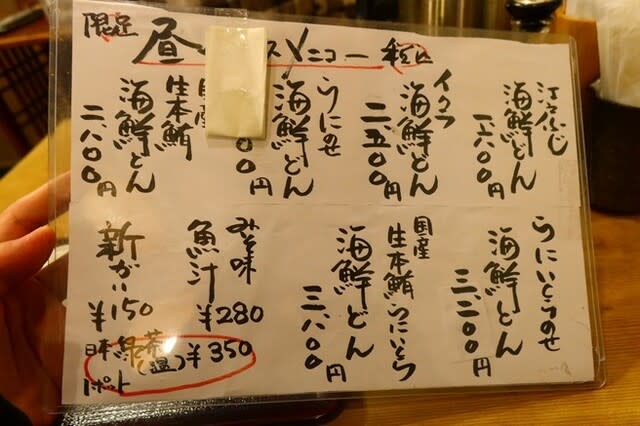 限定 昼 メニュー 税込
海鮮どん
一、六〇〇円
イクラ
海鮮どん
二、五〇〇円
うにのせ
海鮮どん
〇〇円
国産
生本鮪
海鮮どん
二、八〇〇円
うにいくらのせ
海鮮どん
三、二〇〇円
国産
生本鮪うにいくら
海鮮どん
三、八〇〇円
みそ味
魚汁
¥280
新がい
¥150
日本 緑茶
(温) ¥350
1ポット